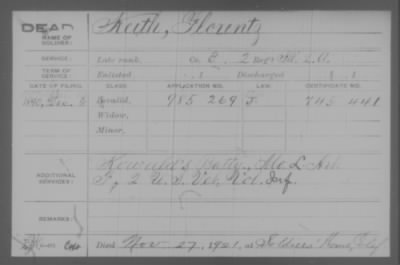 DEAD
NAME OF SOLDIER: Keith, Florentz
SERVICE: Late rank, Co. E, 2 Reg't Ill. L.A.
TERM OF SERVICE: Enlisted , 1 Discharged , 1
DATE OF FILING. CLASS. APPLICATION NO. LAW. CERTIFICATE NO.
1890, Invalid, 985 269 J. 745 441
Widow,
Minor,
ADDITIONAL SERVICES: Batty, Mo. L. Art.
F, 2 U.S. Vet. Vol. Inf.
REMARKS:
Died Nov. 27, 1921, at Soldiers Home, Calif